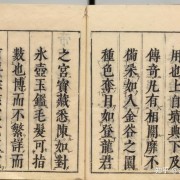 用也上自墳典下及
傳奇凡有相關靡不
備采如入金谷之園
種色奪目如登龍君
之宮寶藏悉陳如對
氷壺玉鑑毛髮可指
數也博而不繁詳而